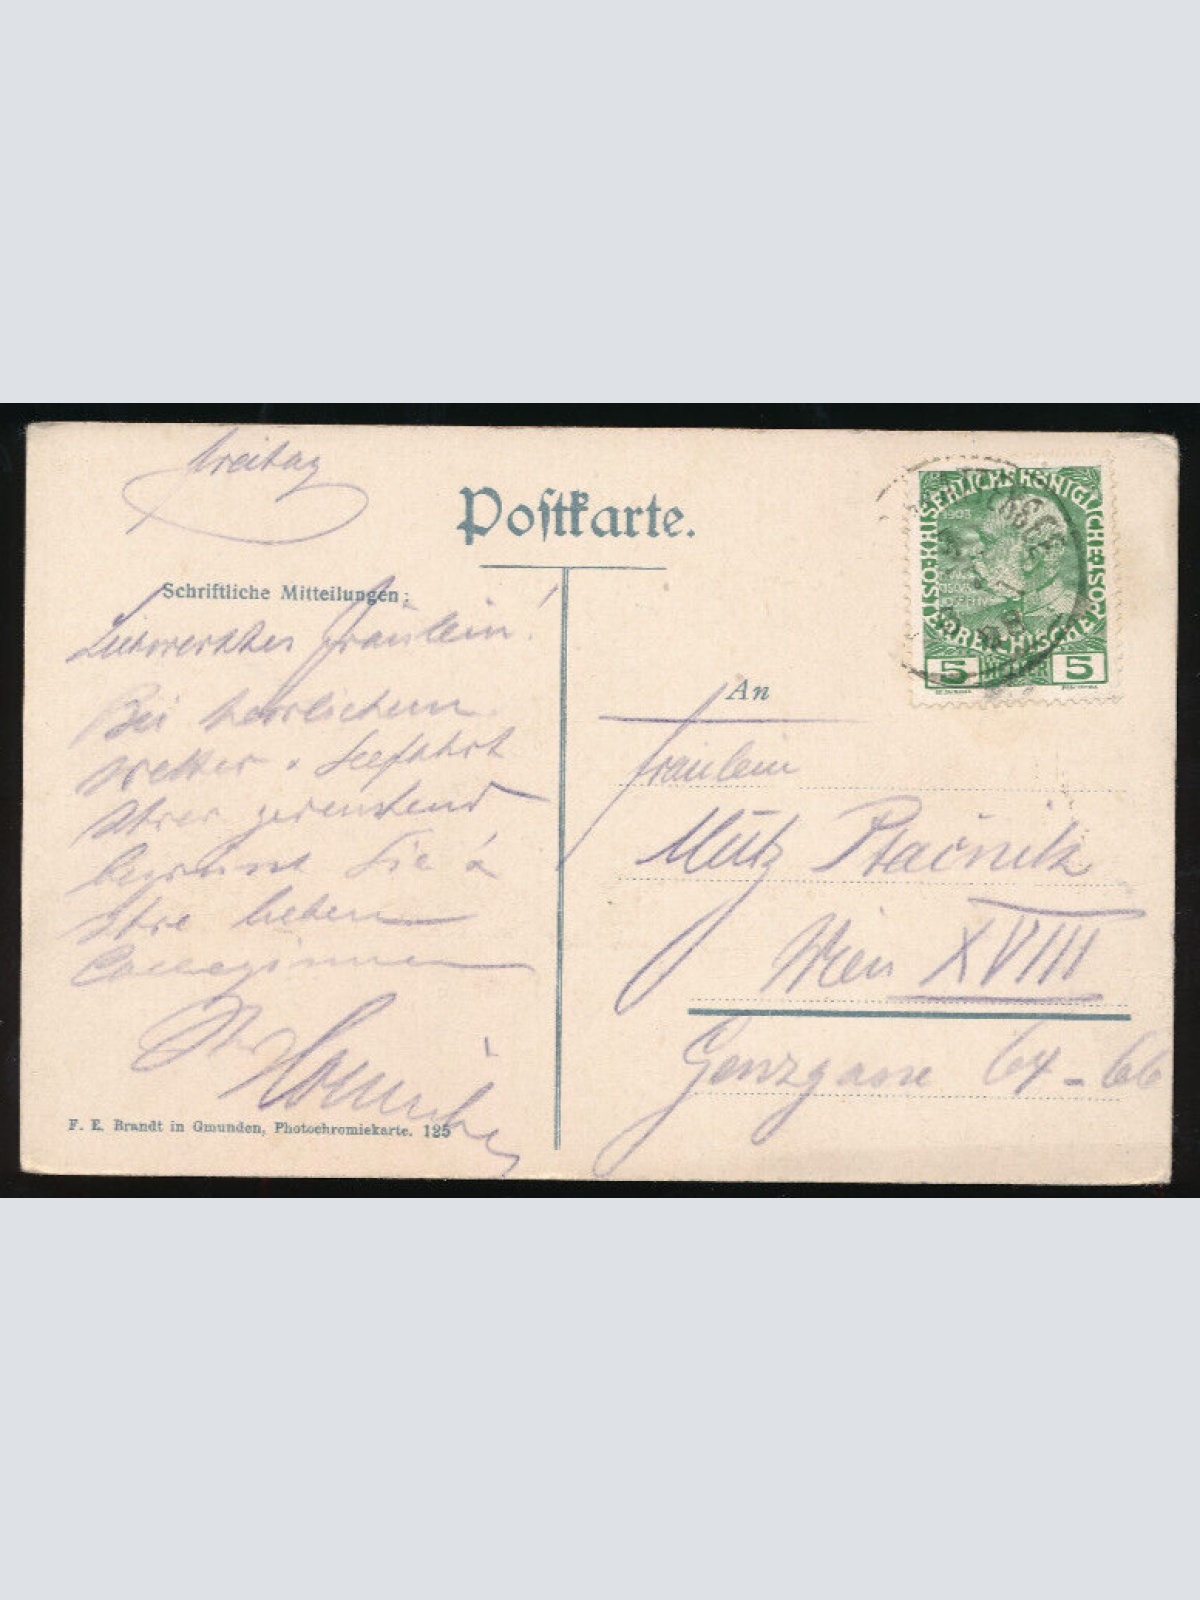 Freitag
Postkarte.
Schriftliche Mitteilungen:
Liebwerthes Fräulein!
Bei herrlichem
Wetter u. Seefahrt
Ihrer gedenkend
begrüsst Sie u
Ihre lieben
Colleginnen
Ihr
F. E. Brandt in Gmunden, Photochromiekarte. 125
KAISERLICH KÖNIGLICHE ÖSTERREICHISCHE POST
1908
5 HELLER 5
An
Fräulein
Mitz Ptačnik
Wien XVIII
Genzgasse 64-66